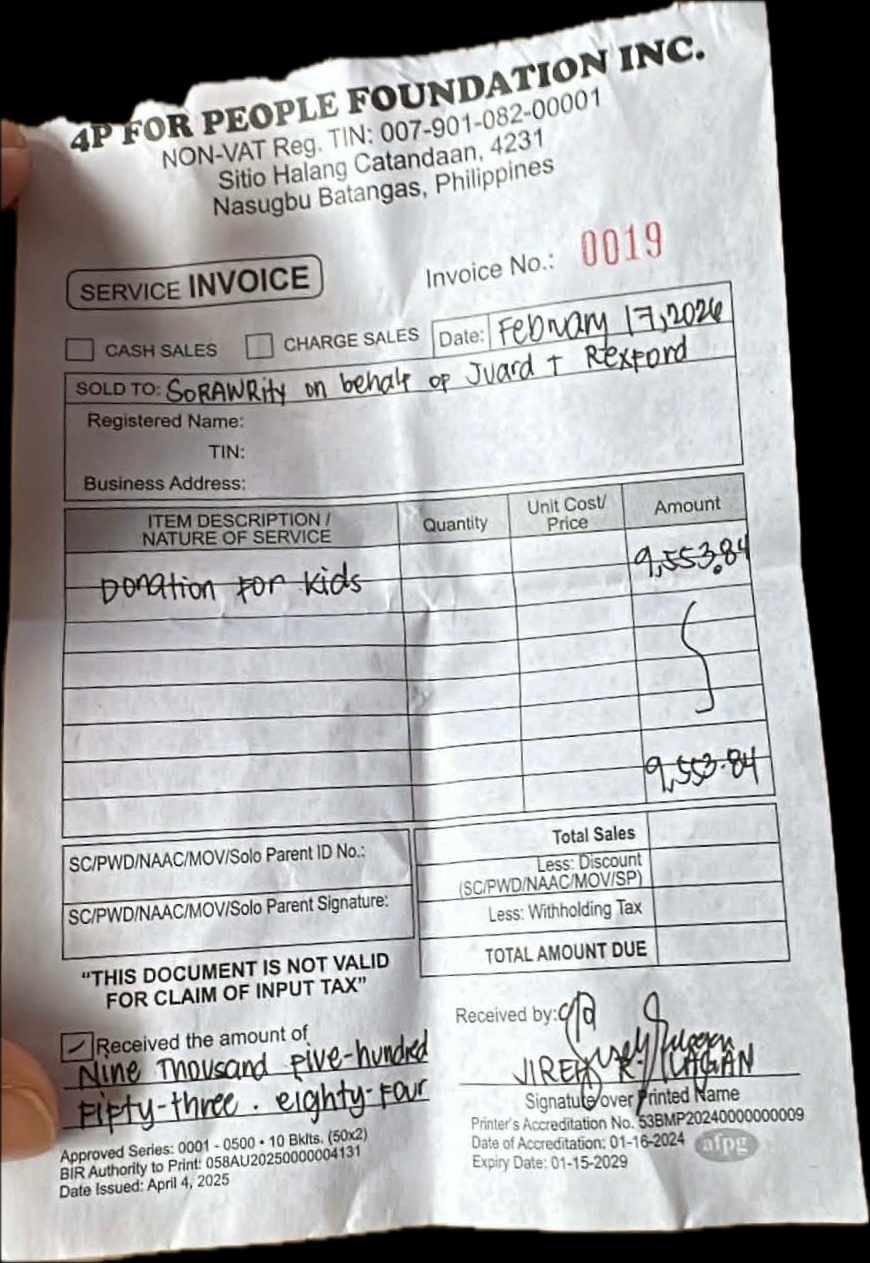 4P FOR PEOPLE FOUNDATION INC.
NON-VAT Reg. TIN: 007-901-082-00001
Sitio Halang Catandaan, 4231
Nasugbu Batangas, Philippines
SERVICE INVOICE
Invoice No.: 0019
CASH SALES
CHARGE SALES
Date: February 17, 2026
SOLD TO: SORAWRity on behalf of Juard + Rexford
Registered Name:
TIN:
Business Address:
ITEM DESCRIPTION / NATURE OF SERVICE
Quantity
Unit Cost/ Price
Amount
Donation for kids 9,553.84
9,553.84
Total Sales
Less: Discount
(SC/PWD/NAAC/MOV/SP)
Less: Withholding Tax
TOTAL AMOUNT DUE
SC/PWD/NAAC/MOV/Solo Parent ID No.:
SC/PWD/NAAC/MOV/Solo Parent Signature:
"THIS DOCUMENT IS NOT VALID
FOR CLAIM OF INPUT TAX"
Received the amount of
Nine Thousand Five-hundred
Fifty-three . eighty-four
Approved Series: 0001 - 0500 • 10 Bklts. (50x2)
BIR Authority to Print: 058AU20250000004131
Date Issued: April 4, 2025
Received by:
JIREH R. ILAGAN
Signature over Printed Name
Printer's Accreditation No. 53BMP20240000000009
Date of Accreditation: 01-16-2024
Expiry Date: 01-15-2029
afpg